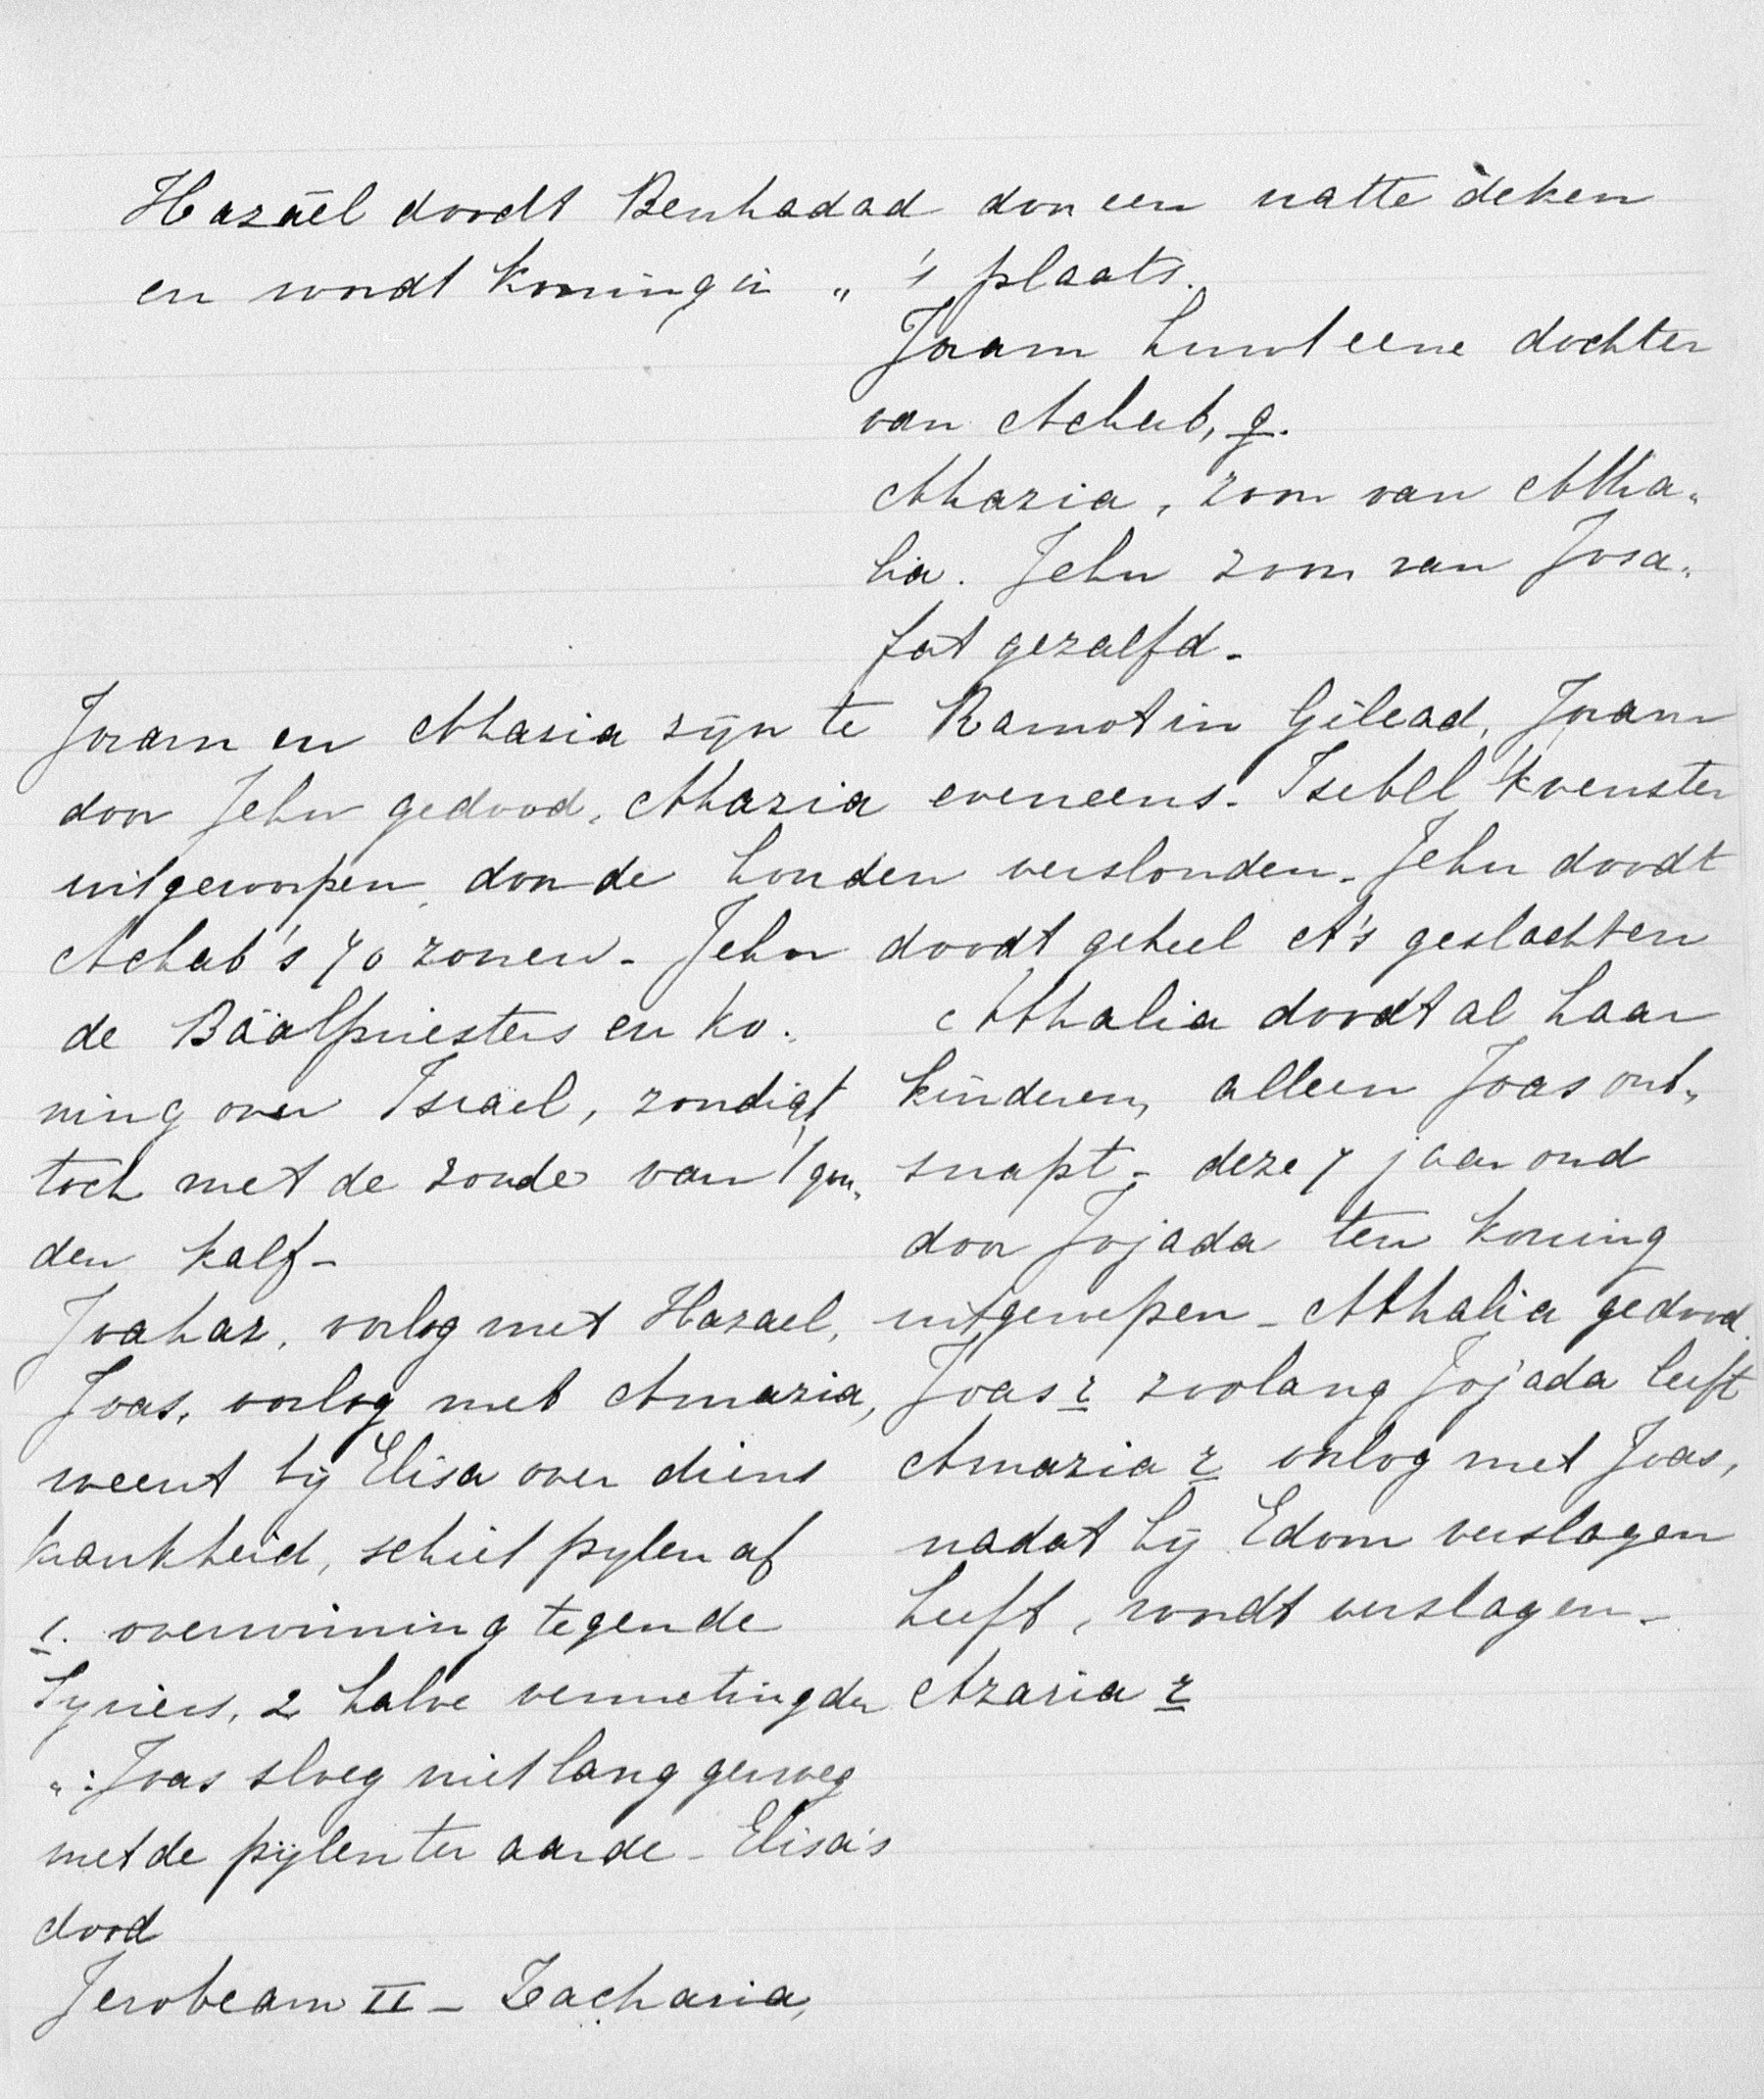 Hazaël doodt Benhadad door een natte deken
en wordt koning in „ 's plaats.
Joram huwt eene dochter
van Achab, g.
Ahazia, zoon van Atha„
lia. Jehu zoon van Josa„
fat gezalfd_
Joram en Ahazia zijn te Ramot in Gilead, Joram
door Jehu gedood, Ahazia eveneens_ Isebel 't venster
uitgeworpen, door de honden verslonden_ Jehu doodt
Achab's 70 zonen_ Jehu doodt geheel A's geslacht en
de Baälpriesters en ko„
ning over Israel, zondigt
toch met de zonde van 't gou„
den kalf_
Joahaz, oorlog met Hazael,
Joas, oorlog met Amazia,
weent bij Elisa over diens
krankheid, schiet pylen af
1. overwinning tegen de
Syriers, 2 halve vernieting der
„ : Joas sloeg niet lang genoeg
met de pijlen ter aarde_ Elisa's
dood
Jerobeam II _ Zacharia,
Athalia doodt al haar
kinderen, alleen Joas ont„
snapt_ deze 7 jaar oud
door Jojada ten koning
uitgeroepen_ Athalia gedood.
Joas r zoolang Jojada leeft
Amazia r oorlog met Joas,
nadat hij Edom verslagen
heeft, wordt verslagen_
Azaria r